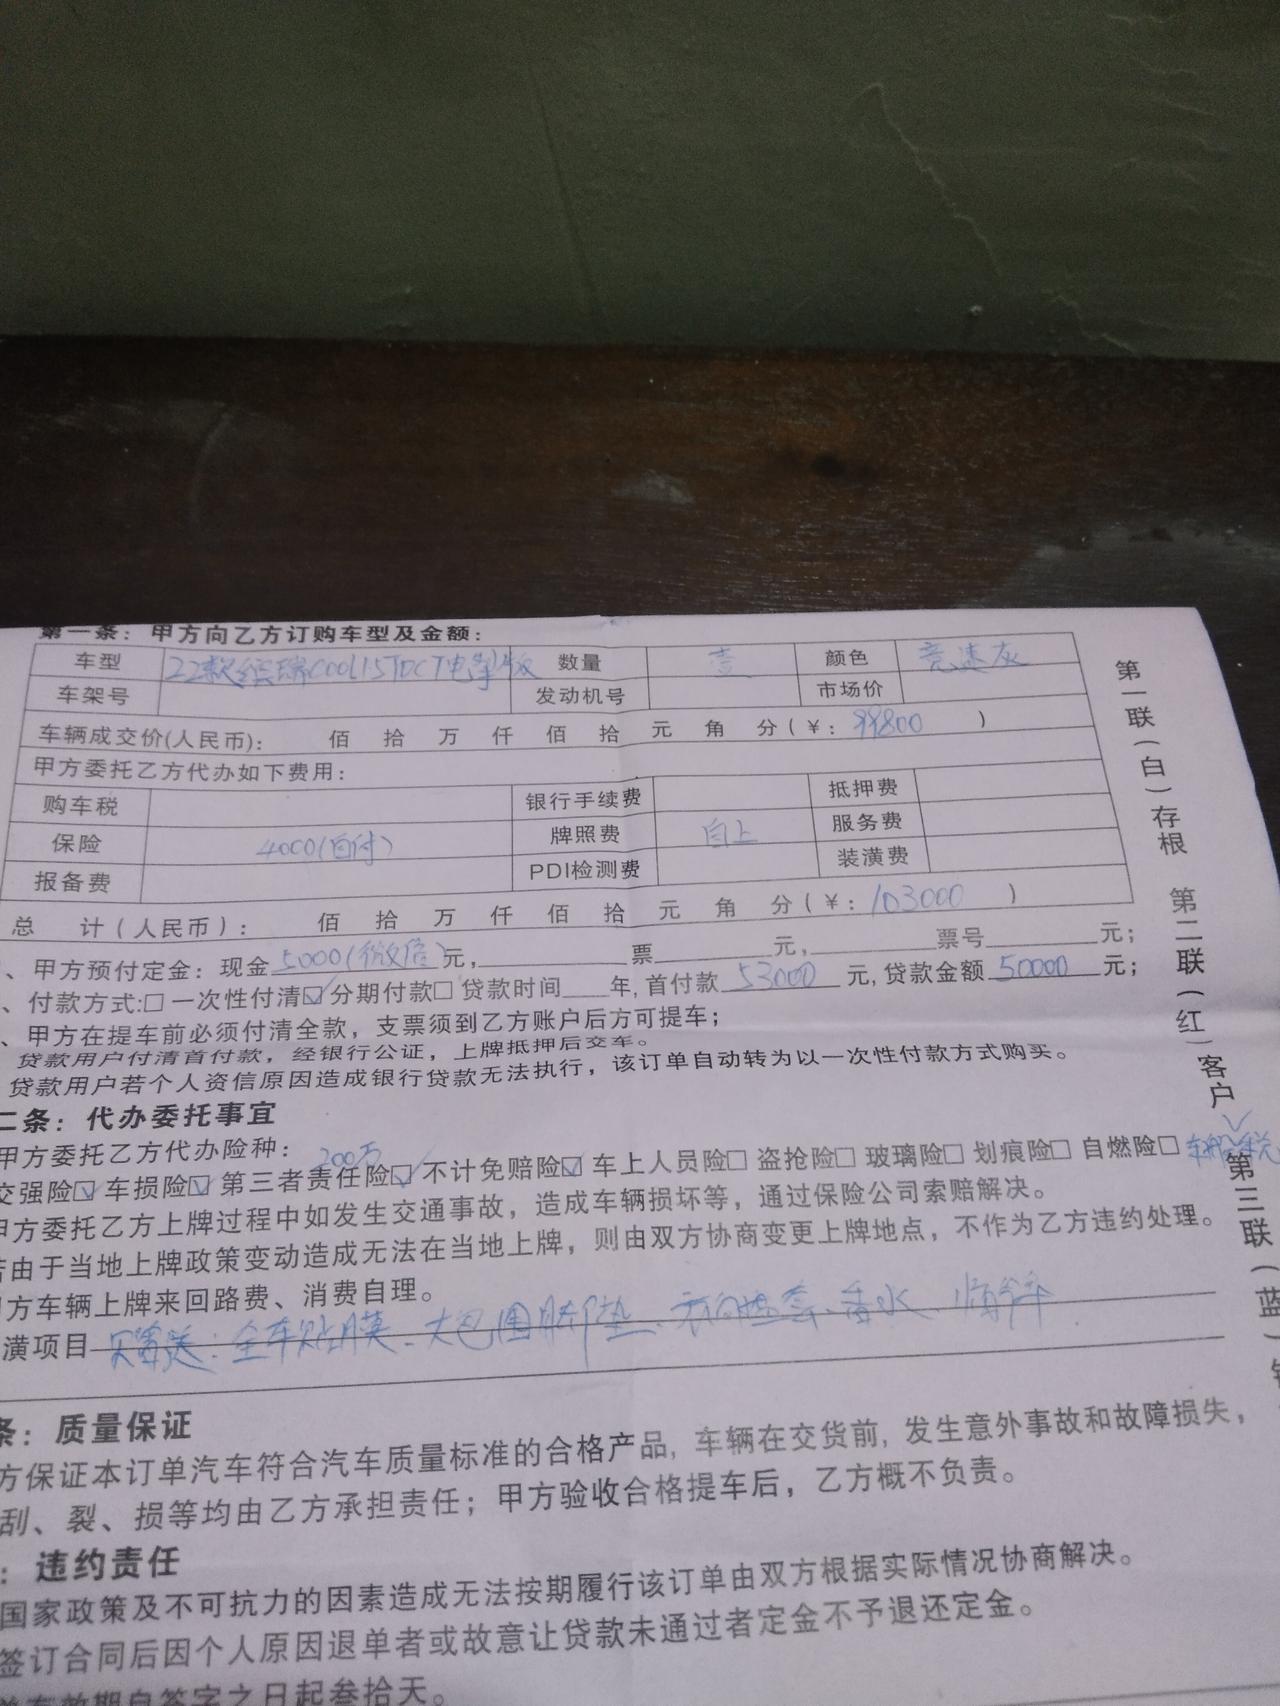 第一条：甲方向乙方订购车型及金额：
车型 22款缤瑞COOL1.5TDCT电擎版 数量 壹 颜色 竞速灰
车架号 发动机号 市场价
车辆成交价(人民币)： 佰 拾 万 仟 佰 拾 元 角 分(￥：99800 )
甲方委托乙方代办如下费用：
购车税 银行手续费 抵押费
保险 4000(自付) 牌照费 自上 服务费
报备费 PDI检测费 装潢费
总 计(人民币)： 佰 拾 万 仟 佰 拾 元 角 分(￥：103000 )
、甲方预付定金：现金5000(微信)元，票 元， 票号 元；
、付款方式:□ 一次性付清☑ 分期付款□ 贷款时间 年, 首付款 53000 元, 贷款金额 50000 元；
、甲方在提车前必须付清全款，支票须到乙方账户后方可提车；
贷款用户付清首付款，经银行公证，上牌抵押后交车。
贷款用户若个人资信原因造成银行贷款无法执行，该订单自动转为以一次性付款方式购买。
二条：代办委托事宜
甲方委托乙方代办险种：
200万
交强险☑ 车损险☑ 第三者责任险☑ 不计免赔险☑ 车上人员险□ 盗抢险□ 玻璃险□ 划痕险□ 自燃险□ 车船税
甲方委托乙方上牌过程中如发生交通事故，造成车辆损坏等，通过保险公司索赔解决。
若由于当地上牌政策变动造成无法在当地上牌，则由双方协商变更上牌地点，不作为乙方违约处理。
甲方车辆上牌来回路费、消费自理。
潢项目 全车贴膜、大包围脚垫、香水
条：质量保证
方保证本订单汽车符合汽车质量标准的合格产品, 车辆在交货前, 发生意外事故和故障损失，
刮、裂、损等均由乙方承担责任；甲方验收合格提车后，乙方概不负责。
：违约责任
国家政策及不可抗力的因素造成无法按期履行该订单由双方根据实际情况协商解决。
签订合同后因个人原因退单者或故意让贷款未通过者定金不予退还定金。
单有效期自签字之日起叁拾天。
第一联(白)存根 第二联(红)客户 第三联(蓝)